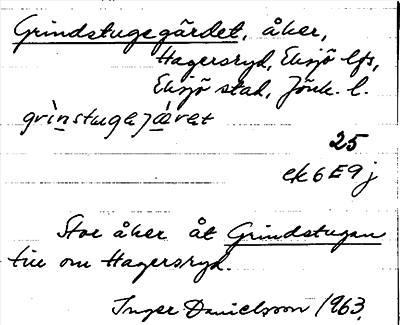 Grindstugegärdet, åker,
Hagersryd, Eksjö lfs,
Eksjö stad, Jönk. l.
grìnstugajǽret
25
ek 6E9j
Stor åker åt Grindstugan
till om Hagersryd.
Inger Danielsson 1963.